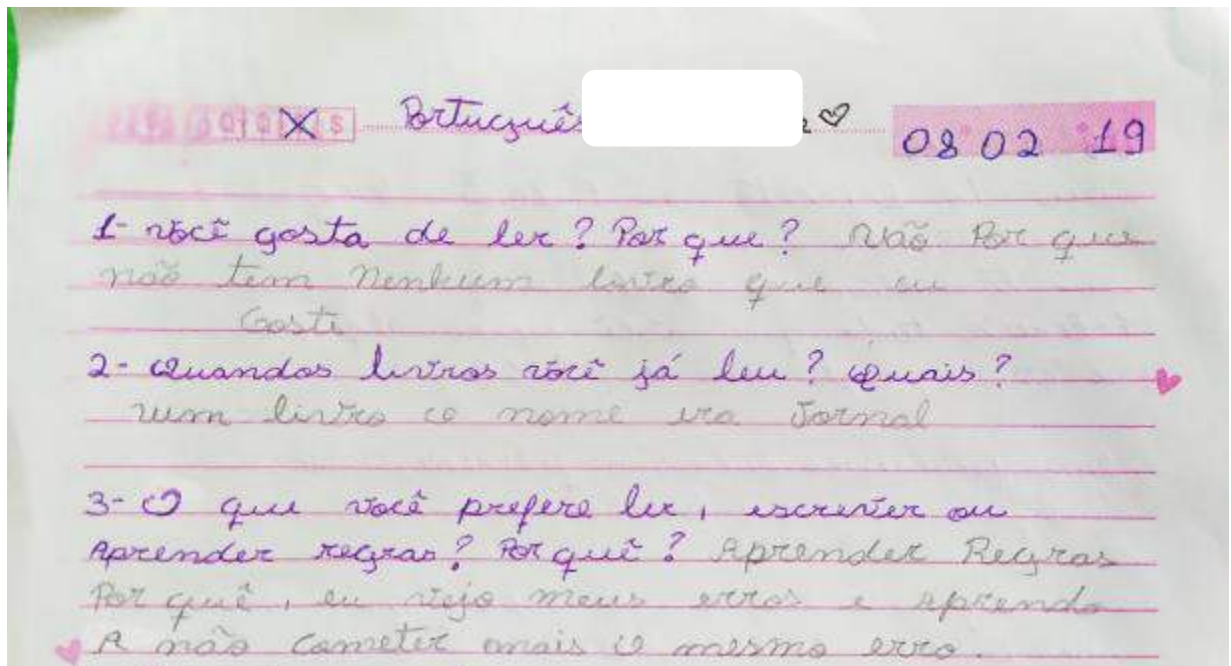 Português 08 02 19
1- você gosta de ler? Por que? Não Por que
não tem Nenhum livro que eu
Goste
2- Quandos livros você já leu? Quais?
um livro o nome era Jornal
3- O que você prefere ler, escrever ou
Aprender regras? Por quê? Aprender Regras
Por quê, eu vejo meus erros e aprendo
A não cometer mais o mesmo erro.